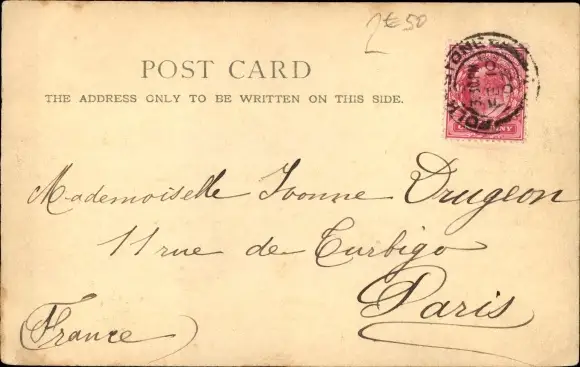 2€50
POST CARD
THE ADDRESS ONLY TO BE WRITTEN ON THIS SIDE.
FOLKESTONE
Mademoiselle Yvonne Drugeon
11 rue de Turbigo
Paris
France